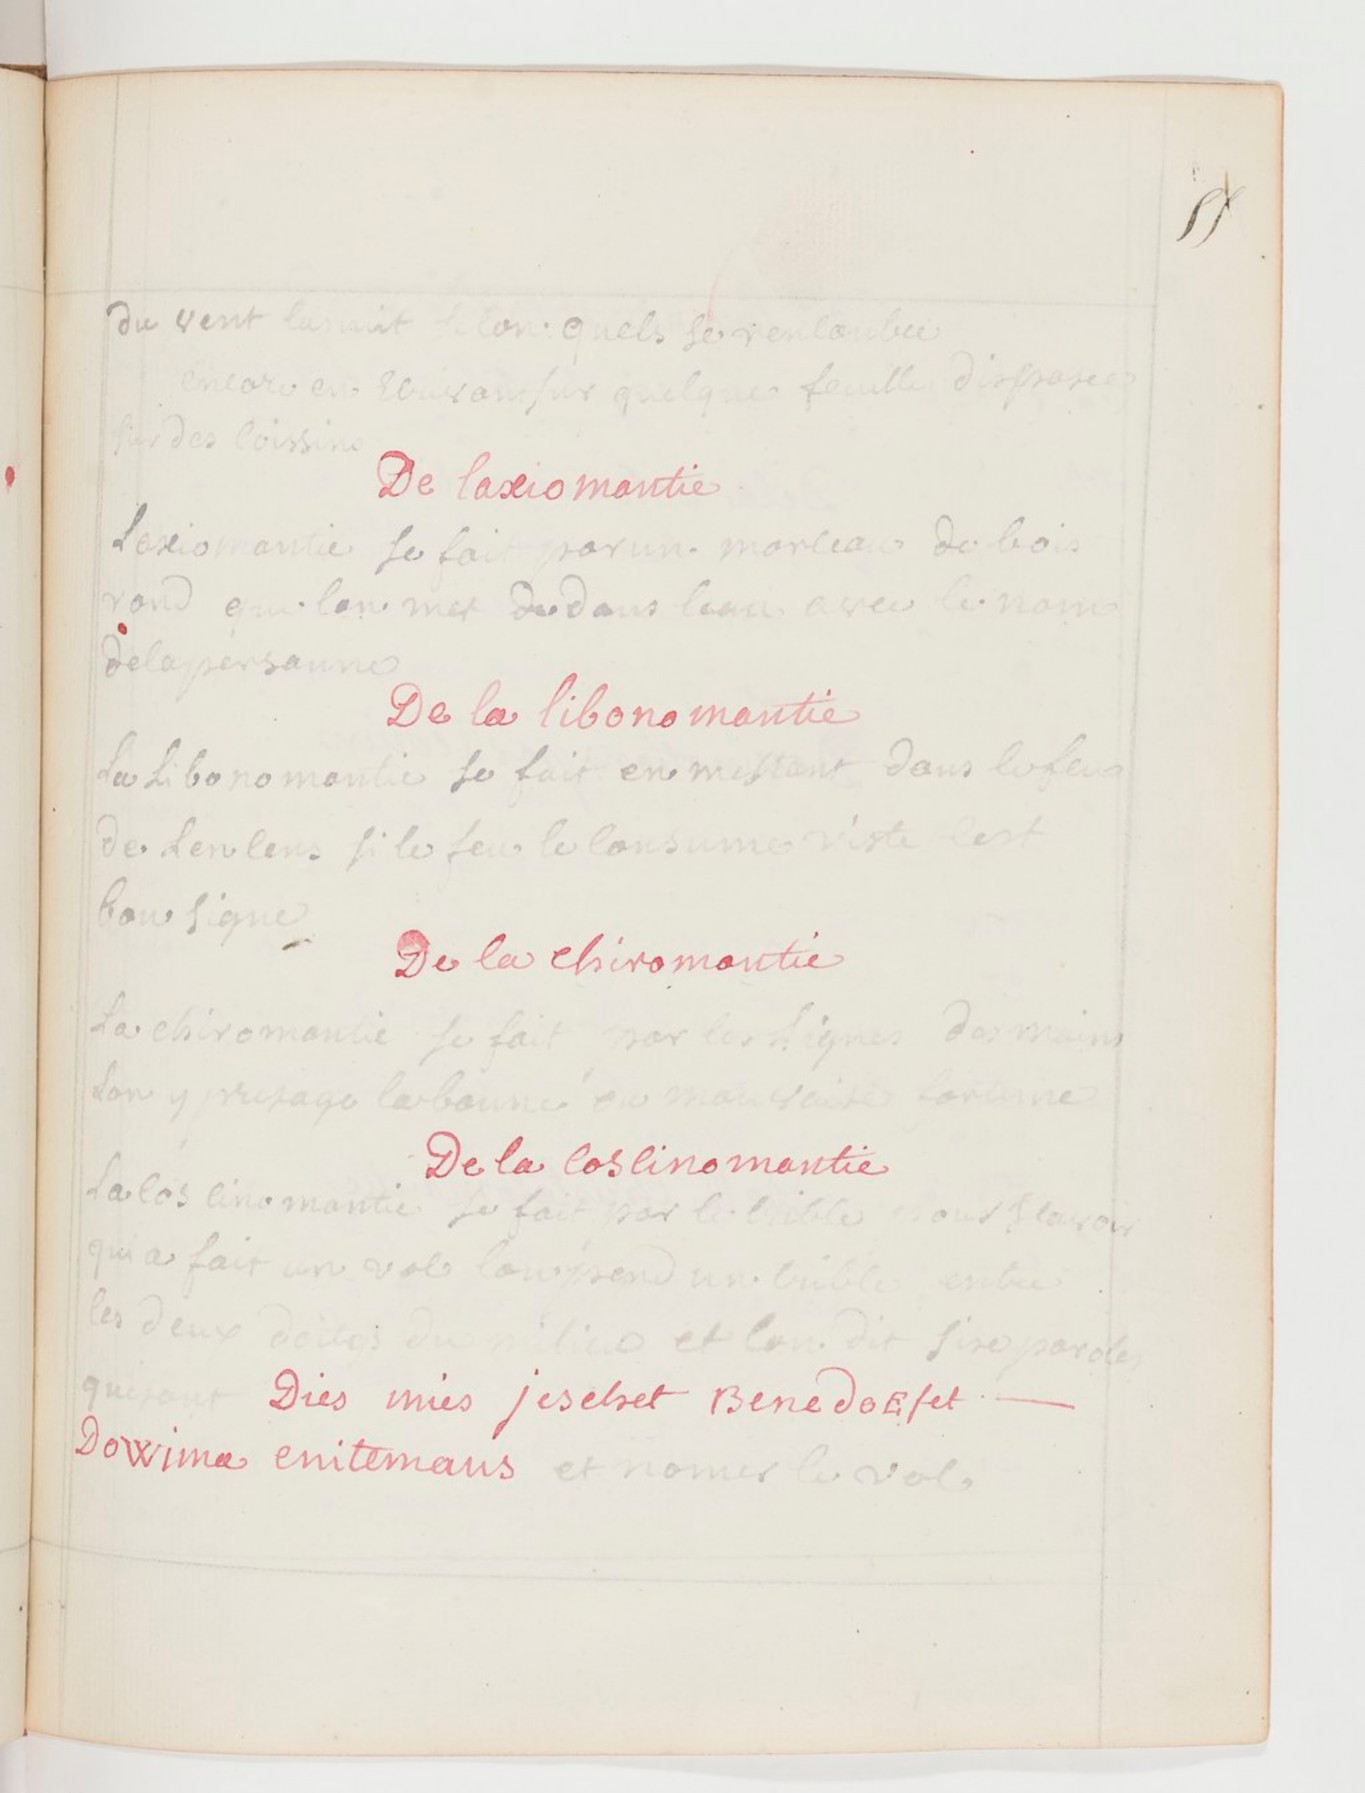 55
du vent quels se
encore en sur quelque feuille disposee
sur des
De laxiomantie
Laxiomantie se fait par un morceau de bois
rond que lon met dedans leau avec le nom
de la persaunne
De la libonomantie
La Libonomantie se fait en mettant dans le feu
de Lencens si le feu le consume viste cest
bon signe
De la chiromantie
La chiromantie se fait par les Lignes des mains
Lon y presage la bonne ou mauvaise fortune
De la coscinomantie
La coscinomantie se fait par le crible pour scavoir
qui a fait un vol lon prend un crible entre
les deux doitgs du milieu et lon dit six paroles
qui sont Dies mies jeschet BenedoEfet —
Dowima enitemaus et nomer le vol